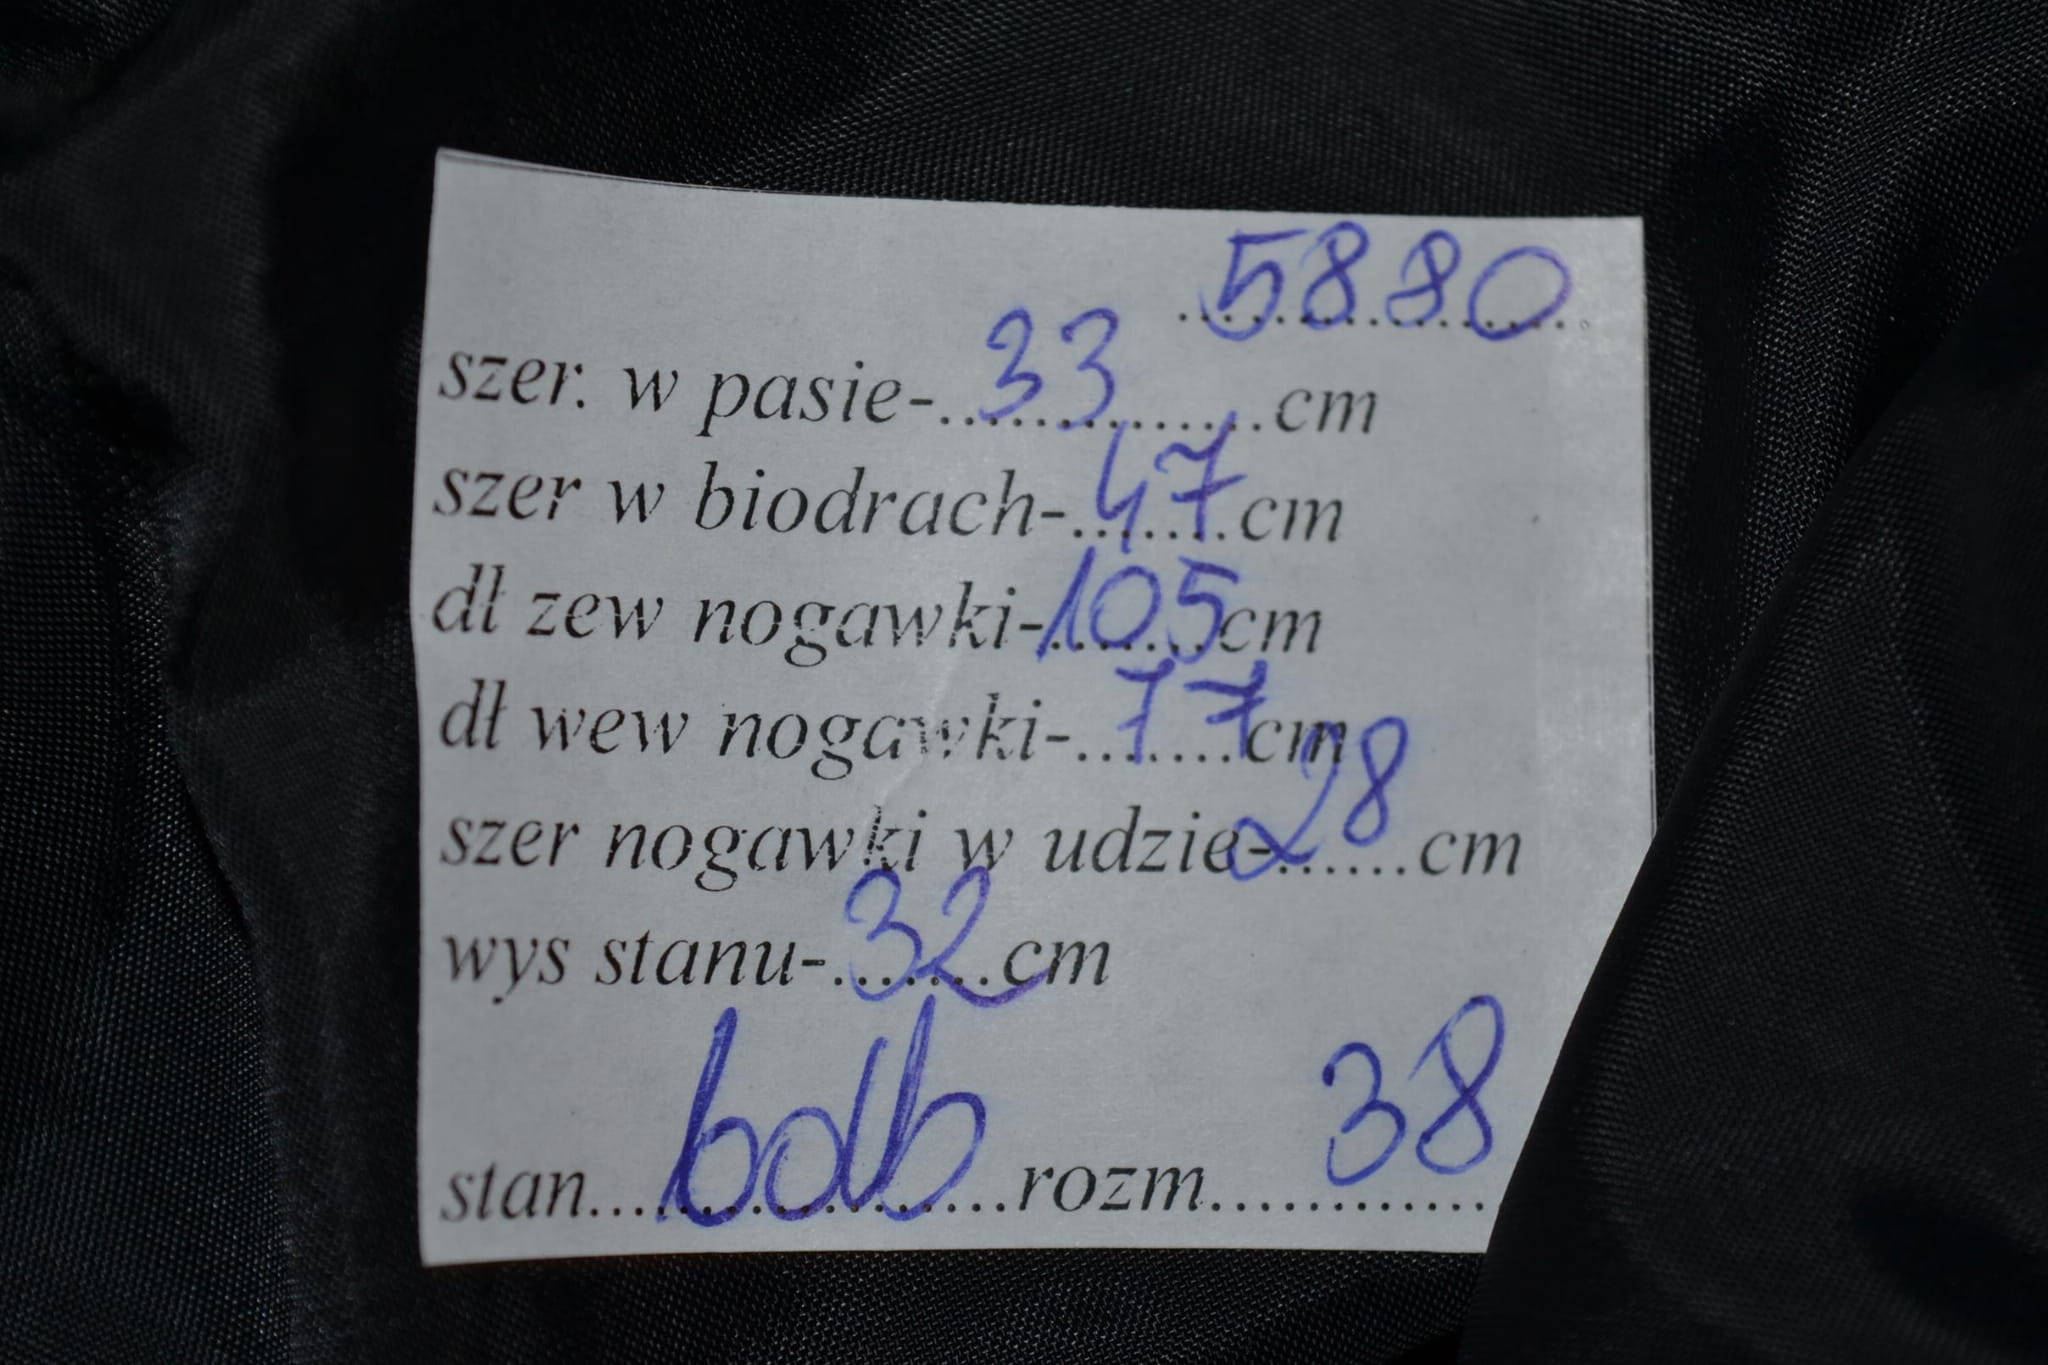 5880
szer. w pasie-33cm
szer w biodrach-47cm
dł zew nogawki-105cm
dł wew nogawki-77cm
szer nogawki w udzie-28cm
wys stanu-32cm
stan bdb rozm 38